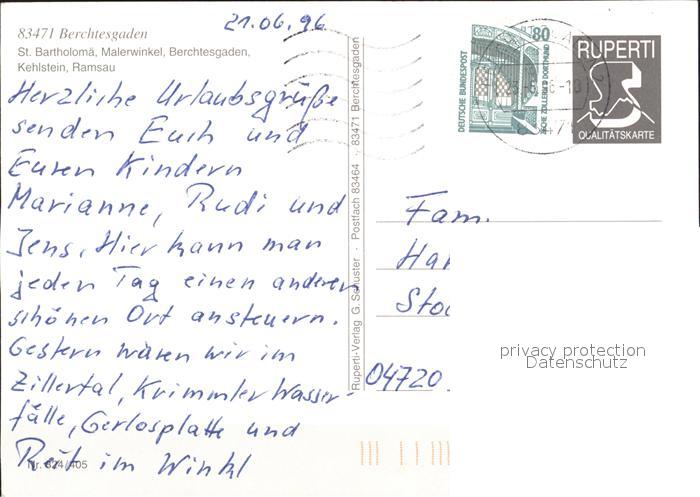 21.06.96
83471 Berchtesgaden
St. Bartholomä, Malerwinkel, Berchtesgaden,
Kehlstein, Ramsau
Herzliche Urlaubsgrüße
senden Euch und
Euren Kindern
Marianne, Rudi und
Jens. Hier kann man
jeden Tag einen anderen
schönen Ort ansteuern.
Gestern waren wir im
Zillertal, Krimmler Wasser-
fälle, Gerlosplatte und
Reit im Winkl
Nr. 324/405
Ruperti-Verlag G. Schuster · Postfach 83464 · 83471 Berchtesgaden
DEUTSCHE BUNDESPOST
80
ZECHE ZOLLERN II DORTMUND
RUPERTI
QUALITÄTSKARTE
Fam.
Har
Stoc
04720
privacy protection
Datenschutz